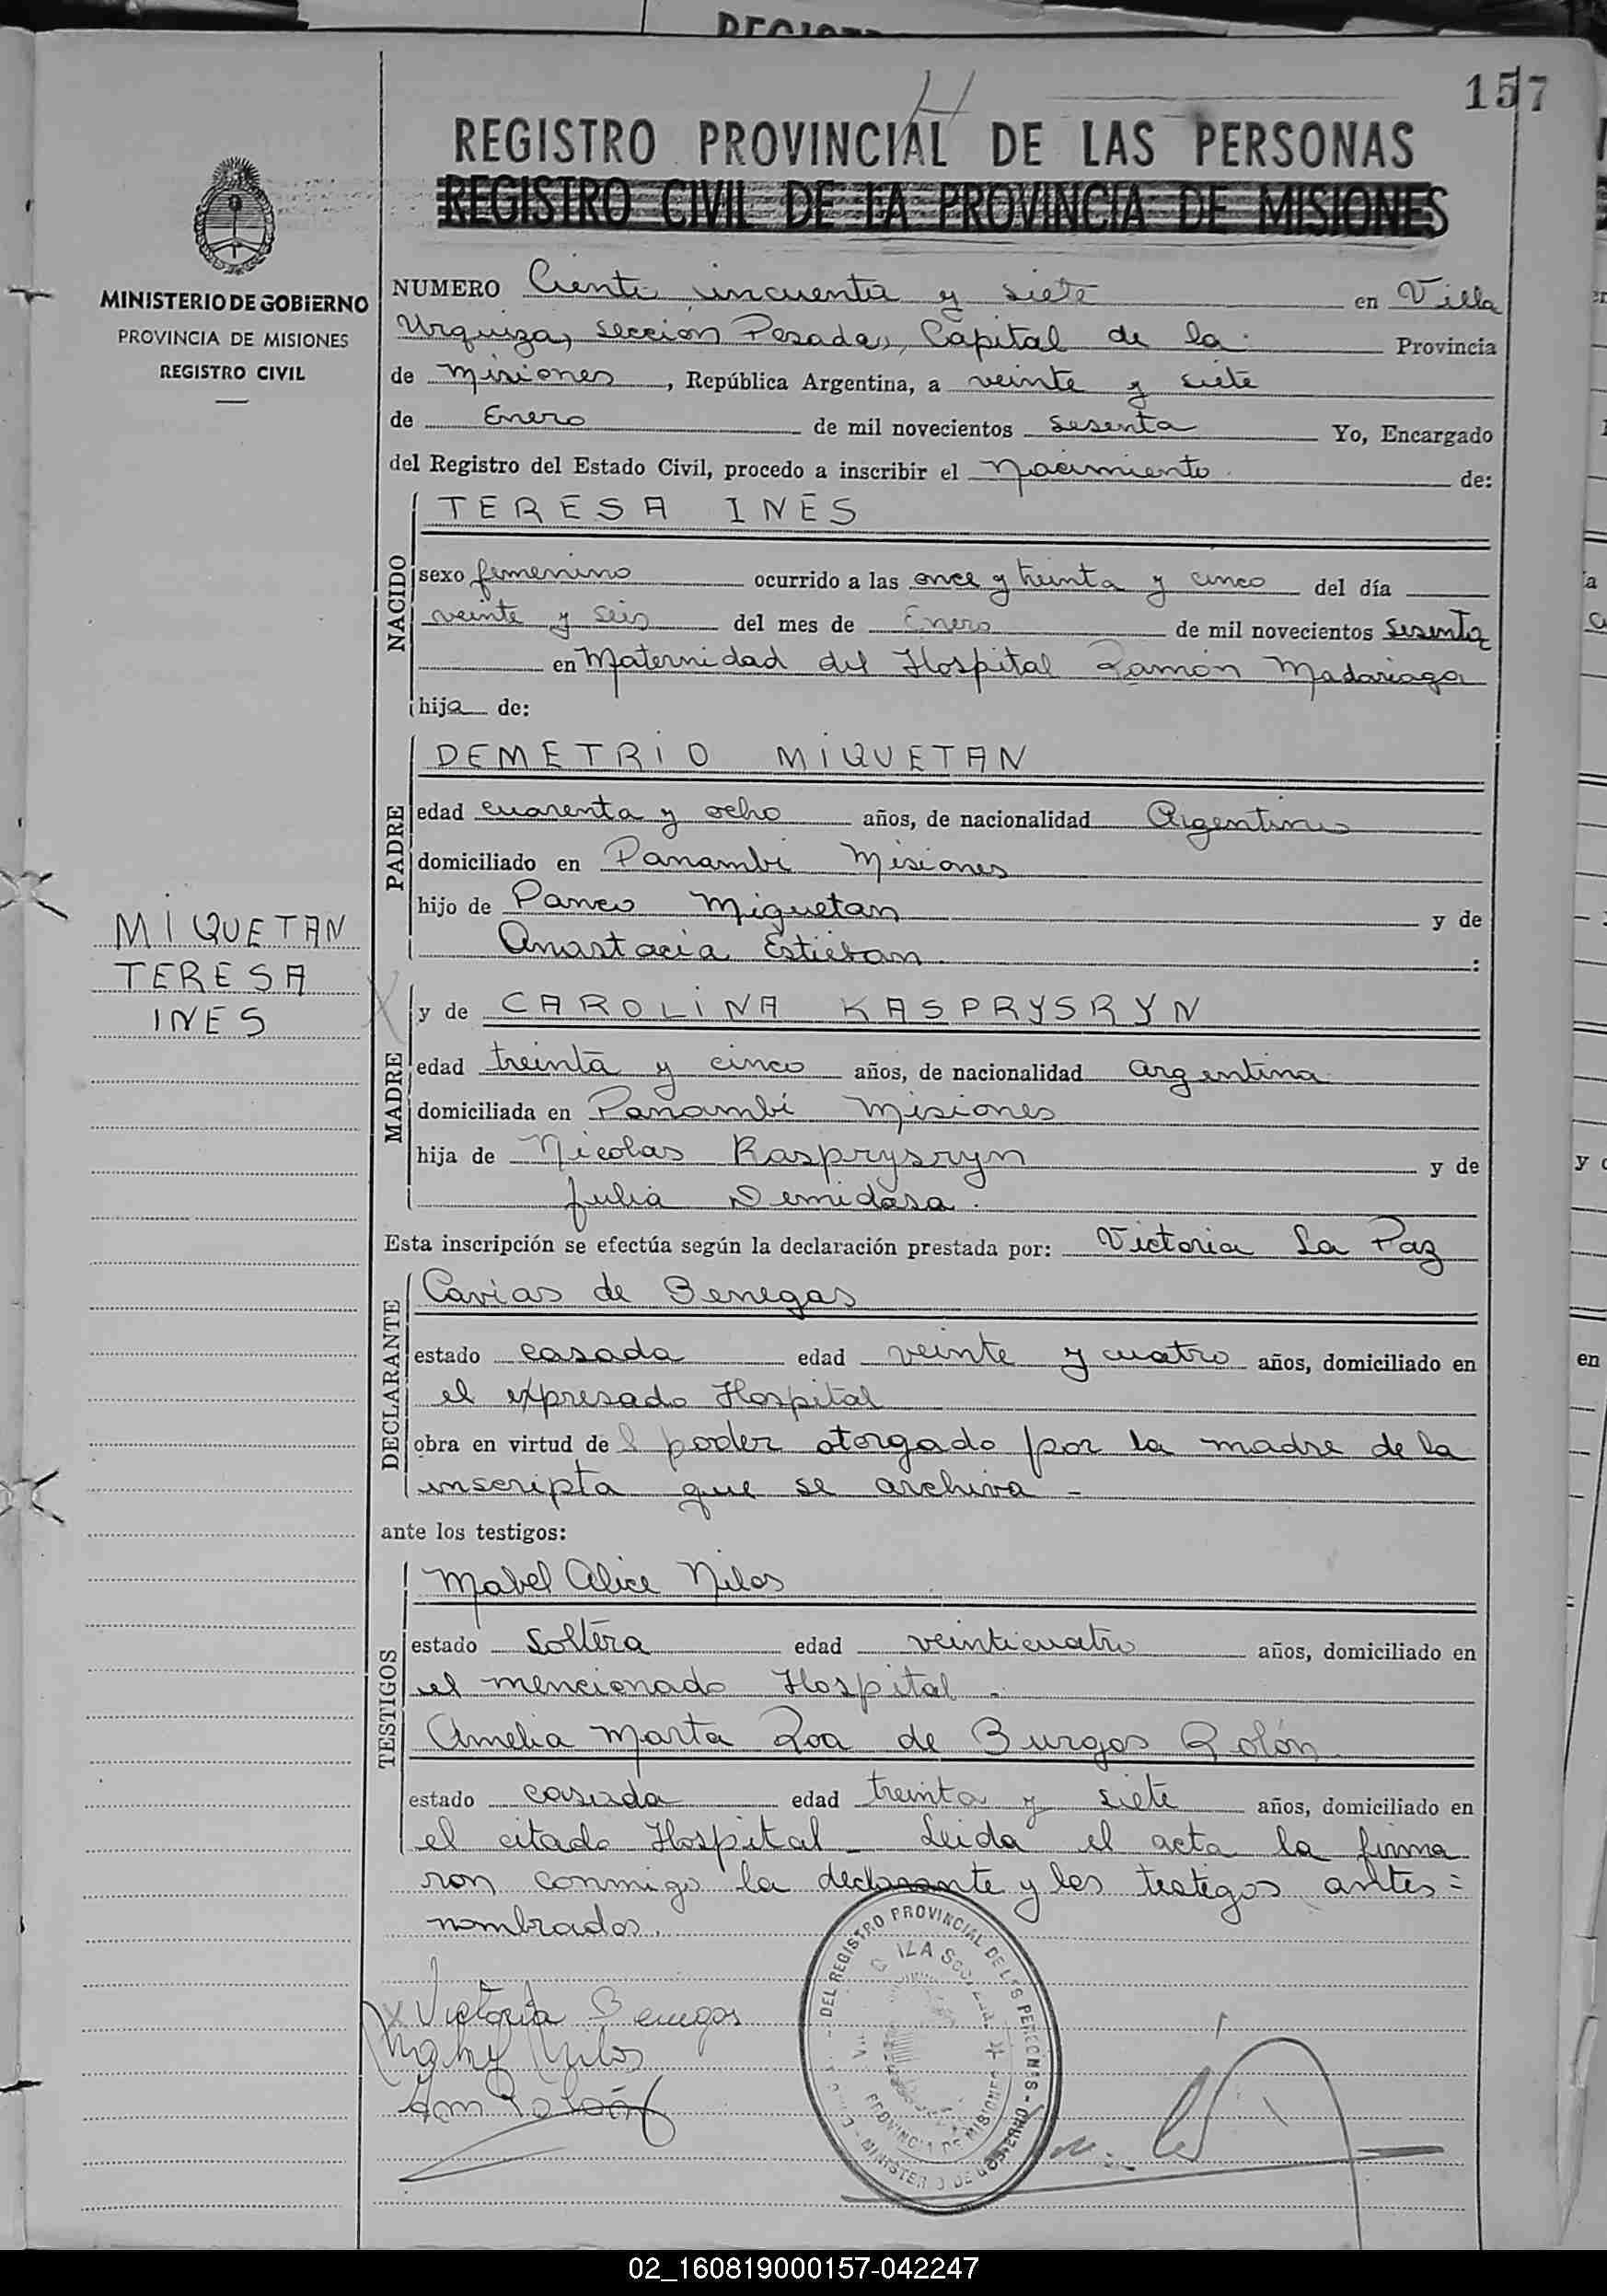 157
REGISTRO PROVINCIAL DE LAS PERSONAS
REGISTRO CIVIL DE LA PROVINCIA DE MISIONES
MINISTERIO DE GOBIERNO
PROVINCIA DE MISIONES
REGISTRO CIVIL
MIQUETAN
TERESA
INES
NUMERO Ciento incuenta y siete en Villa
Urquiza, sección Posadas, Capital de la Provincia
de Misiones, República Argentina, a veinte y siete
de Enero de mil novecientos sesenta Yo, Encargado
del Registro del Estado Civil, procedo a inscribir el nacimiento de:
NACIDO
TERESA INÉS
sexo femenino ocurrido a las once y treinta y cinco del día
veinte y seis del mes de Enero de mil novecientos sesenta
en Maternidad del Hospital Ramón Madariaga
hija de:
PADRE
DEMETRIO MIQUETAN
edad cuarenta y ocho años, de nacionalidad Argentino
domiciliado en Panambi Misiones
hijo de Panco Miquetan y de
Anastacia Estieban :
MADRE
y de CAROLINA KASPRYSRYN
edad treinta y cinco años, de nacionalidad argentina
domiciliada en Panambí Misiones
hija de Nicolas Kasprysryn y de
Julia Demidosa.
Esta inscripción se efectúa según la declaración prestada por: Victoria La Paz
DECLARANTE
Cavias de Benegas
estado casada edad veinte y cuatro años, domiciliado en
el expresado Hospital
obra en virtud del poder otorgado por la madre de la
inscripta que se archiva -
ante los testigos:
TESTIGOS
Mabel Alice Nilos
estado Soltera edad veinticuatro años, domiciliado en
el mencionado Hospital -
Amelia Marta Roa de Burgos Rolón
estado casada edad treinta y siete años, domiciliado en
el citado Hospital - Leida el acta la firma
ron conmigo la declarante y los testigos antes=
nombrados.
Victoria Benegas
DEL REGISTRO PROVINCIAL DE LAS PERSONAS - MINISTERIO DE GOBIERNO
PROVINCIA DE MISIONES
02_160819000157-042247